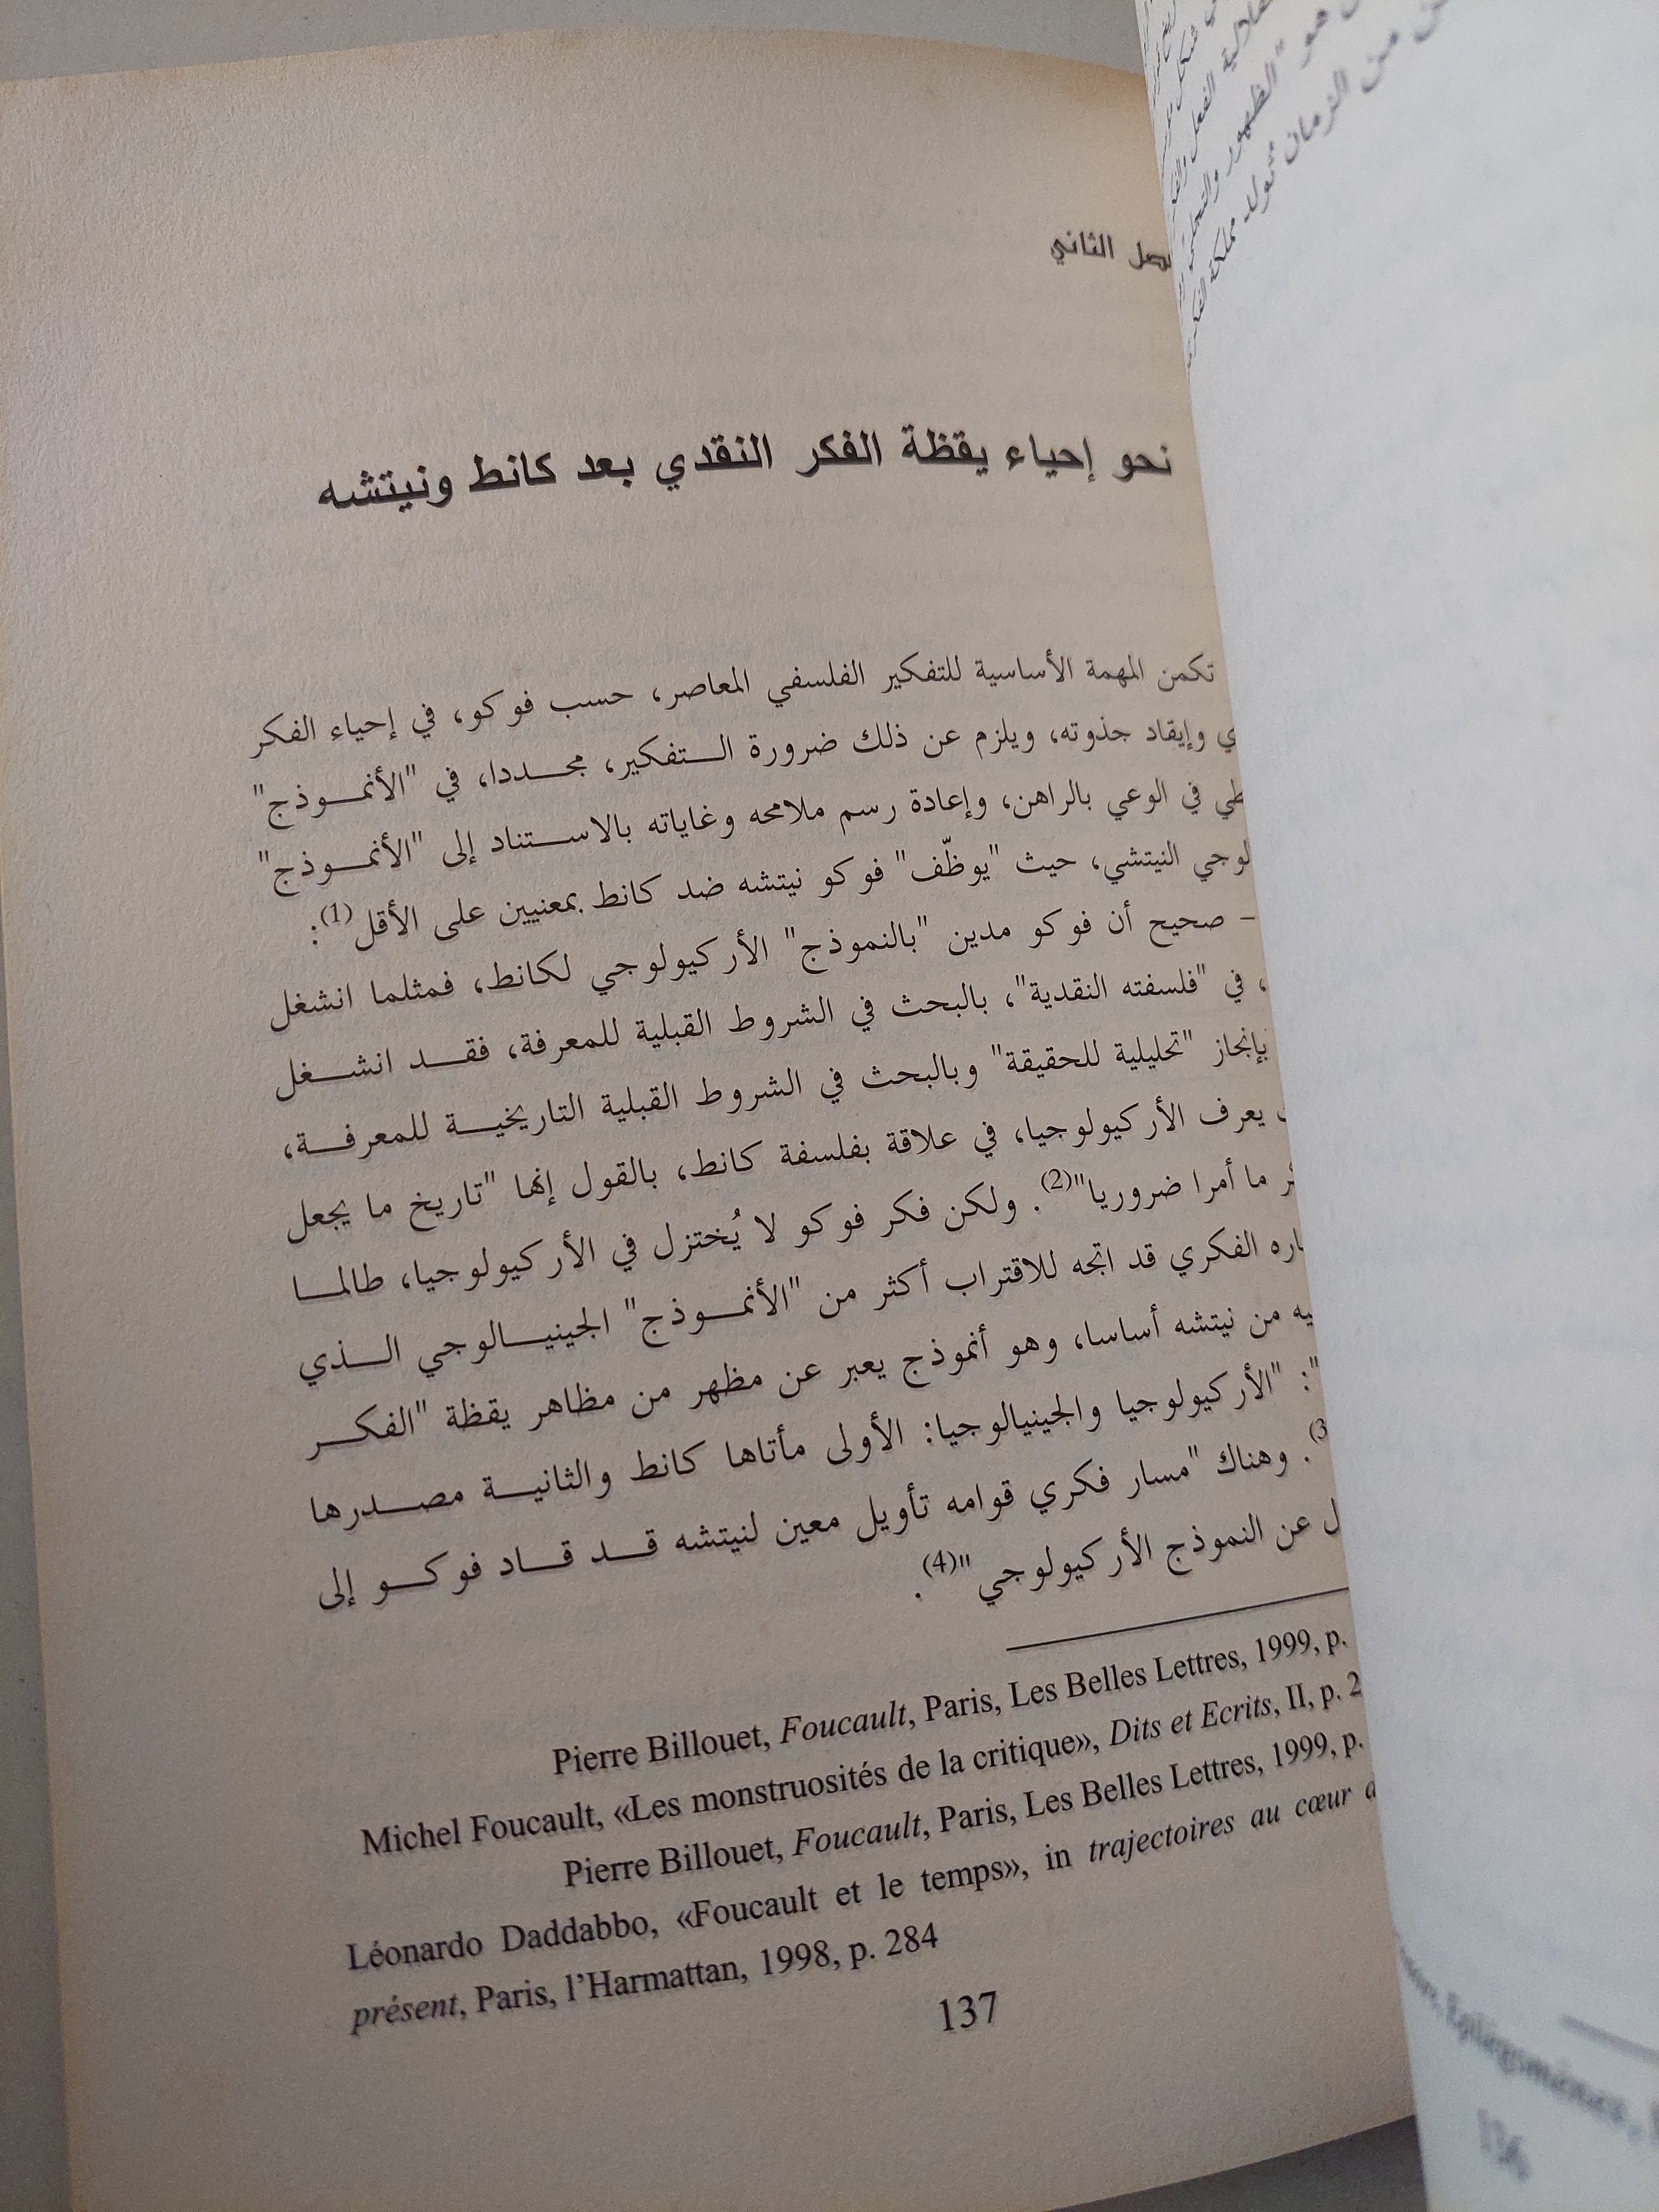 الثاني
نحو إحياء يقظة الفكر النقدي بعد كانط ونيتشه
تكمن المهمة الأساسية للتفكير الفلسفي المعاصر، حسب فوكو، في إحياء الفكر
وإيقاد جذوته، ويلزم عن ذلك ضرورة التفكير، مجددا، في "الأنموذج"
في الوعي بالراهن، وإعادة رسم ملامحه وغاياته بالاستناد إلى "الأنموذج"
النيتشي، حيث "يوظّف" فوكو نيتشه ضد كانط بمعنيين على الأقل(1):
– صحيح أن فوكو مدين "بالنموذج" الأركيولوجي لكانط، فمثلما انشغل
، في "فلسفته النقدية"، بالبحث في الشروط القبلية للمعرفة، فقد انشغل
بإنجاز "تحليلية للحقيقة" وبالبحث في الشروط القبلية التاريخية للمعرفة،
يعرف الأركيولوجيا، في علاقة بفلسفة كانط، بالقول إنها "تاريخ ما يجعل
ما أمرا ضروريا"(2). ولكن فكر فوكو لا يُختزل في الأركيولوجيا، طالما
الفكري قد اتجه للاقتراب أكثر من "الأنموذج" الجينيالوجي الذي
من نيتشه أساسا، وهو أنموذج يعبر عن مظهر من مظاهر يقظة "الفكر
": "الأركيولوجيا والجينيالوجيا: الأولى مأتاها كانط والثانية مصدرها
. وهناك "مسار فكري قوامه تأويل معين لنيتشه قد قاد فوكو إلى
عن النموذج الأركيولوجي"(4).
Pierre Billouet, Foucault, Paris, Les Belles Lettres, 1999, p.
Michel Foucault, «Les monstruosités de la critique», Dits et Ecrits, II, p. 2
Pierre Billouet, Foucault, Paris, Les Belles Lettres, 1999, p.
Léonardo Daddabbo, «Foucault et le temps», in trajectoires au cœur
présent, Paris, l'Harmattan, 1998, p. 284
137